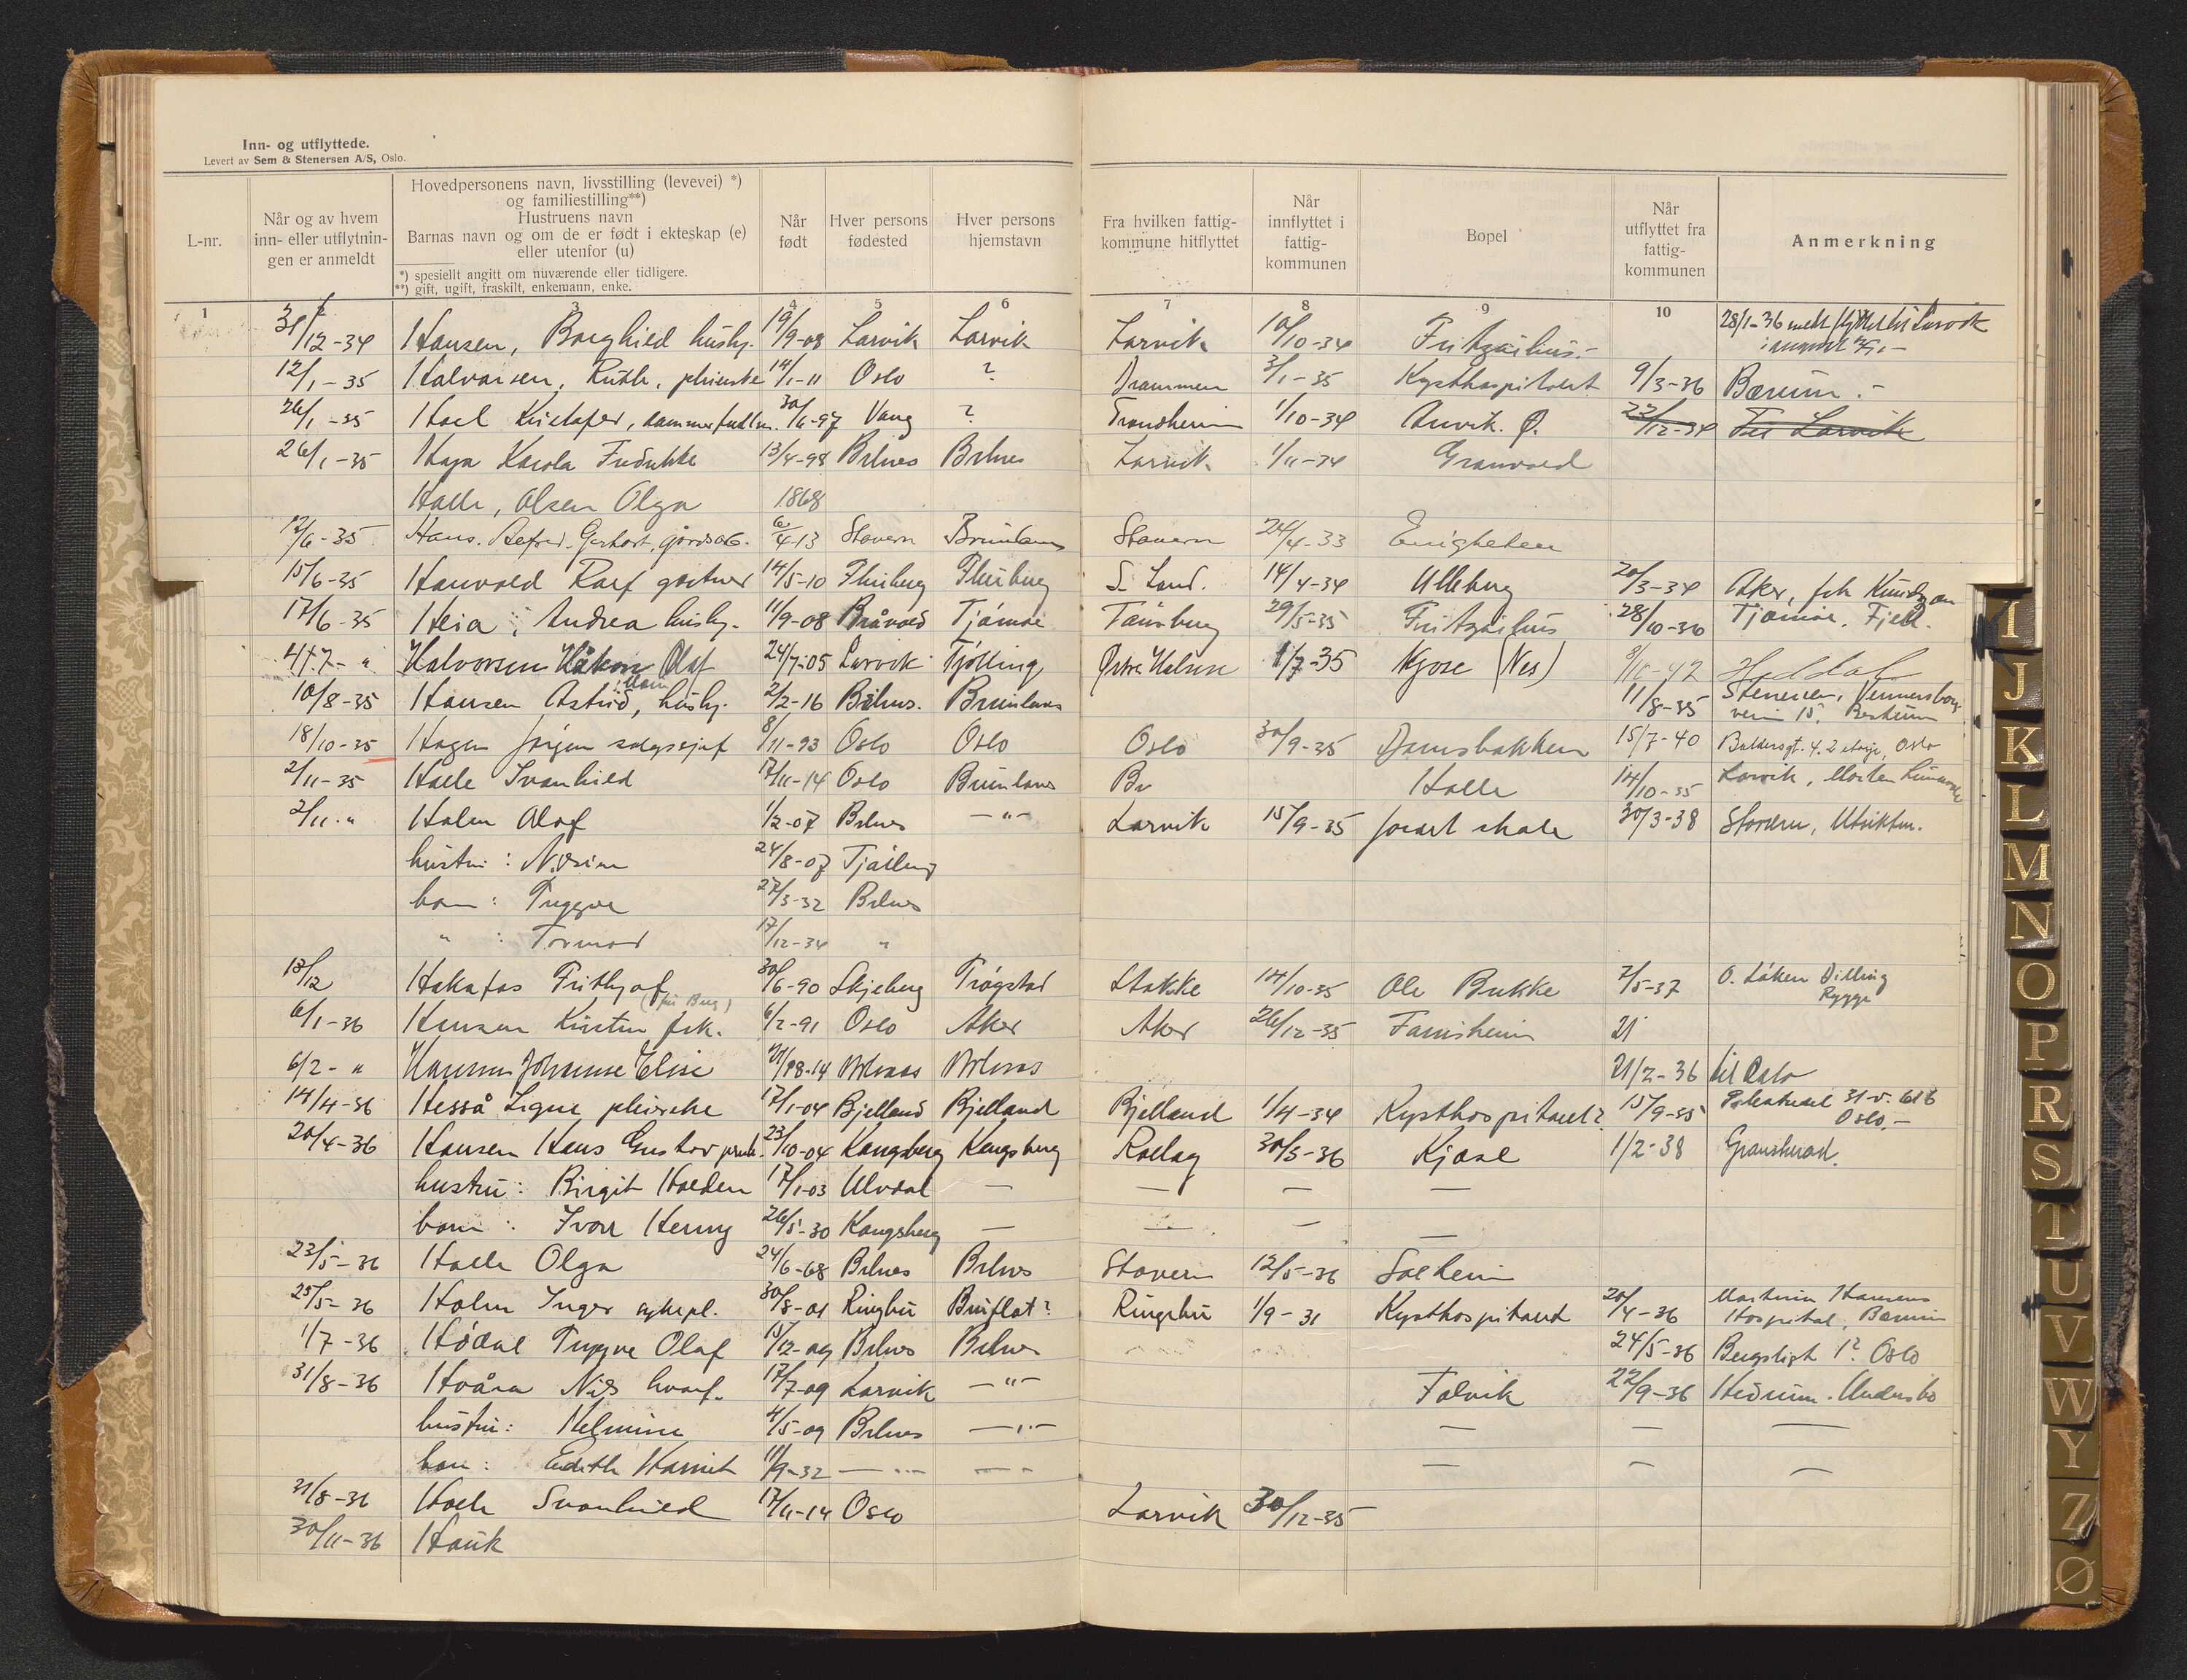 Inn- og utflyttede.
Levert av Sem & Stenersen A/S, Oslo.
L-nr.
Når og av hvem inn- eller utflytnin-gen er anmeldt
Hovedpersonens navn, livsstilling (levevei) *)
og familiestilling**)
Hustruens navn
Barnas navn og om de er født i ekteskap (e)
eller utenfor (u)
*) spesiellt angitt om nuværende eller tidligere.
**) gift, ugift, fraskilt, enkemann, enke.
Når født
Hver persons fødested
Hver persons hjemstavn
Fra hvilken fattig-kommune hitflyttet
Når innflyttet i fattig-kommunen
Bopel
Når utflyttet fra fattig-kommunen
Anmerkning
1 2 3 4 5 6 7 8 9 10
31/12-34 Hansen, Borghild hushj. 19/9-08 Larvik Larvik Larvik 10/10-34 Fritzøehus.- 28/1-36 meldt flyttet til Larvik
i august
12/1-35 Halvorsen, Ruth, pleierske 14/1-11 Oslo ? Drammen 3/1-35 Kysthospitalet 9/3-36 Bærum.-
26/1-35 Hoel Kristofer, 30/6-97 Vang ? Trondheim 1/10-34 Anvik. Ø. 22/12-34 Til Larvik
26/1-35 Haga Karola Fredrikke 13/4-98 Brlnes Brlnes Larvik 1/11-34 Granvold
Halle, Olsen Olga 1868
12/6-35 Hans. Alfred. Gerhart, gårdsarb. 6/4-13 Stavern Brunlanes Stavern 24/4-33 Enigheten
15/6-35 Hanvold Ralf gartner 14/5-10 Flesberg Flesberg S. Land. 14/4-34 Ulleberg 20/3-34 Aker, frk
17/6-35 Heia, Andrea hushj. 11/9-08 Bråvold Tjømøe Tønsberg 29/5-35 Fritzøehus 28/10-36 Tjømøe. Fjell.
4/7- " Halvorsen Håkon Olaf 24/7-05 Larvik Tjølling Østre Halsen 1/7-35 Kjose (Nes) 8/10-42
10/8-35 Hansen Astrid, hushj. 2/2-16 Brlnes. Brunlanes 11/8-35 Stenersen, Vennersborg
veien 15, Bestum
18/10-35 Hagen Jørgen salgssjef 8/11-93 Oslo Oslo Oslo 30/9-35 Damsbakken 15/7-40 Baldersgt. 4. 2 etasje, Oslo
2/11-35 Halle Svanhild 17/11-14 Oslo Brunlanes Br Halle 14/10-35 Larvik,
2/11-" Holm Olaf 1/2-07 Brlnes -"- Larvik 15/9-35 forart skole 30/3-38 Stavern,
hustru: 24/8-07 Tjølling
barn: Tryggve 27/3-32 Brlnes
" : Tormod 17/12-34 "
13/12 Hakafos Frithjof 30/6-90 Skjeberg Trøgstad Stokke 14/10-35 Ole Bukke 7/5-37 O. Løken Dilling
Rygge
6/1-36 Hansen Kirsten frk. (fru Berg) 6/2-91 Oslo Aker Aker 26/12-35 Farisheim 21
6/2-" Hansen Johanne Elise 21/8-14 Brlnes Brlnes 21/2-36 til Oslo
14/4-36 Hesså Signe pleierske 17/1-04 Bjelland Bjelland Bjelland 1/4-34 Kysthospitalet? 15/9-35
Oslo.-
20/4-36 Hansen Hans Gustav 23/10-04 Kongsberg Kongsberg Rollag 30/3-36 Kjose 1/2-38 Gransherad.
hustru: Birgit Holden 17/1-03 Uvdal — — — —
barn: Ivar Henry 26/5-30 Kongsberg — — — —
23/5-36 Halle Olga 24/6-68 Brlnes Brlnes Stavern 12/5-36 Solheim
25/5-36 Holm Inger sykepl. 30/8-01 Ringebu Bruflat? Ringebu 1/9-31 Kysthospitalet 20/4-36 Martina Hansens
Hospital, Bærum
1/7-36 Hødal Tryggve Olaf 15/12-09 Brlnes Brlnes 24/5-36 Bergsligt 1? Oslo
31/8-36 Hvåra Nils hvalf. 17/7-09 Larvik -"- Falvik 22/9-36 Hedrum.
hustru: Helmine 4/5-09 Brlnes -"- — — —
barn: Edith Harriet 11/9-32 -"- -"- — — —
31/8-36 Halle Svanhild 17/11-14 Oslo Larvik 30/12-35
30/11-36 Hauk
I
J
K
L
M
N
O
P
R
S
T
U
V
W
Y
Z
Ø